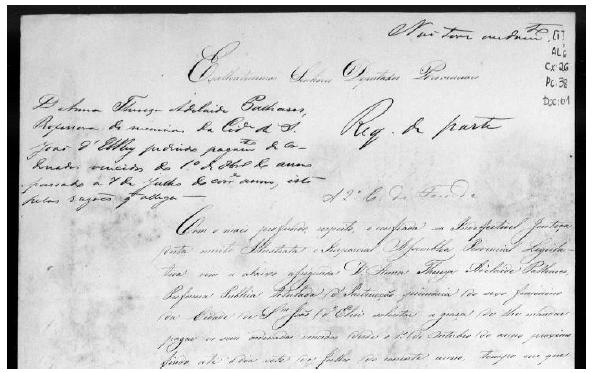 Não teve andam.to
[1]
AL6
Cx: 26
Pc: 38
Doc: 01
Senhores Deputados Provinciaes
D. Anna Thereza Adelaide Palhares,
Professora de meninas da Cid.e de S.
João d'El Rey pedindo pagam.to de or-
denados vencidos do 1.º de do anno
passado a 7 de Julho do corr.e anno,
pelas razões q. allega
Req. de parte
A 2.ª C. de Fazenda
Com o mais profundo respeito, e confiada na Justiça
desta muito Illustrada e Assembléa Provincial Legisla-
tiva vem a abaixo D. Anna Thereza Adelaide Palhares,
Professora Publica de Instrucção primaria do sexo feminino
da Cidade de S. João d'El Rei solicitar a graça de lhe mandar
pagar os seus ordenados vencidos desde o 1.º de do anno proximo
findo até o dia sete de Julho do corrente anno, tempo em que